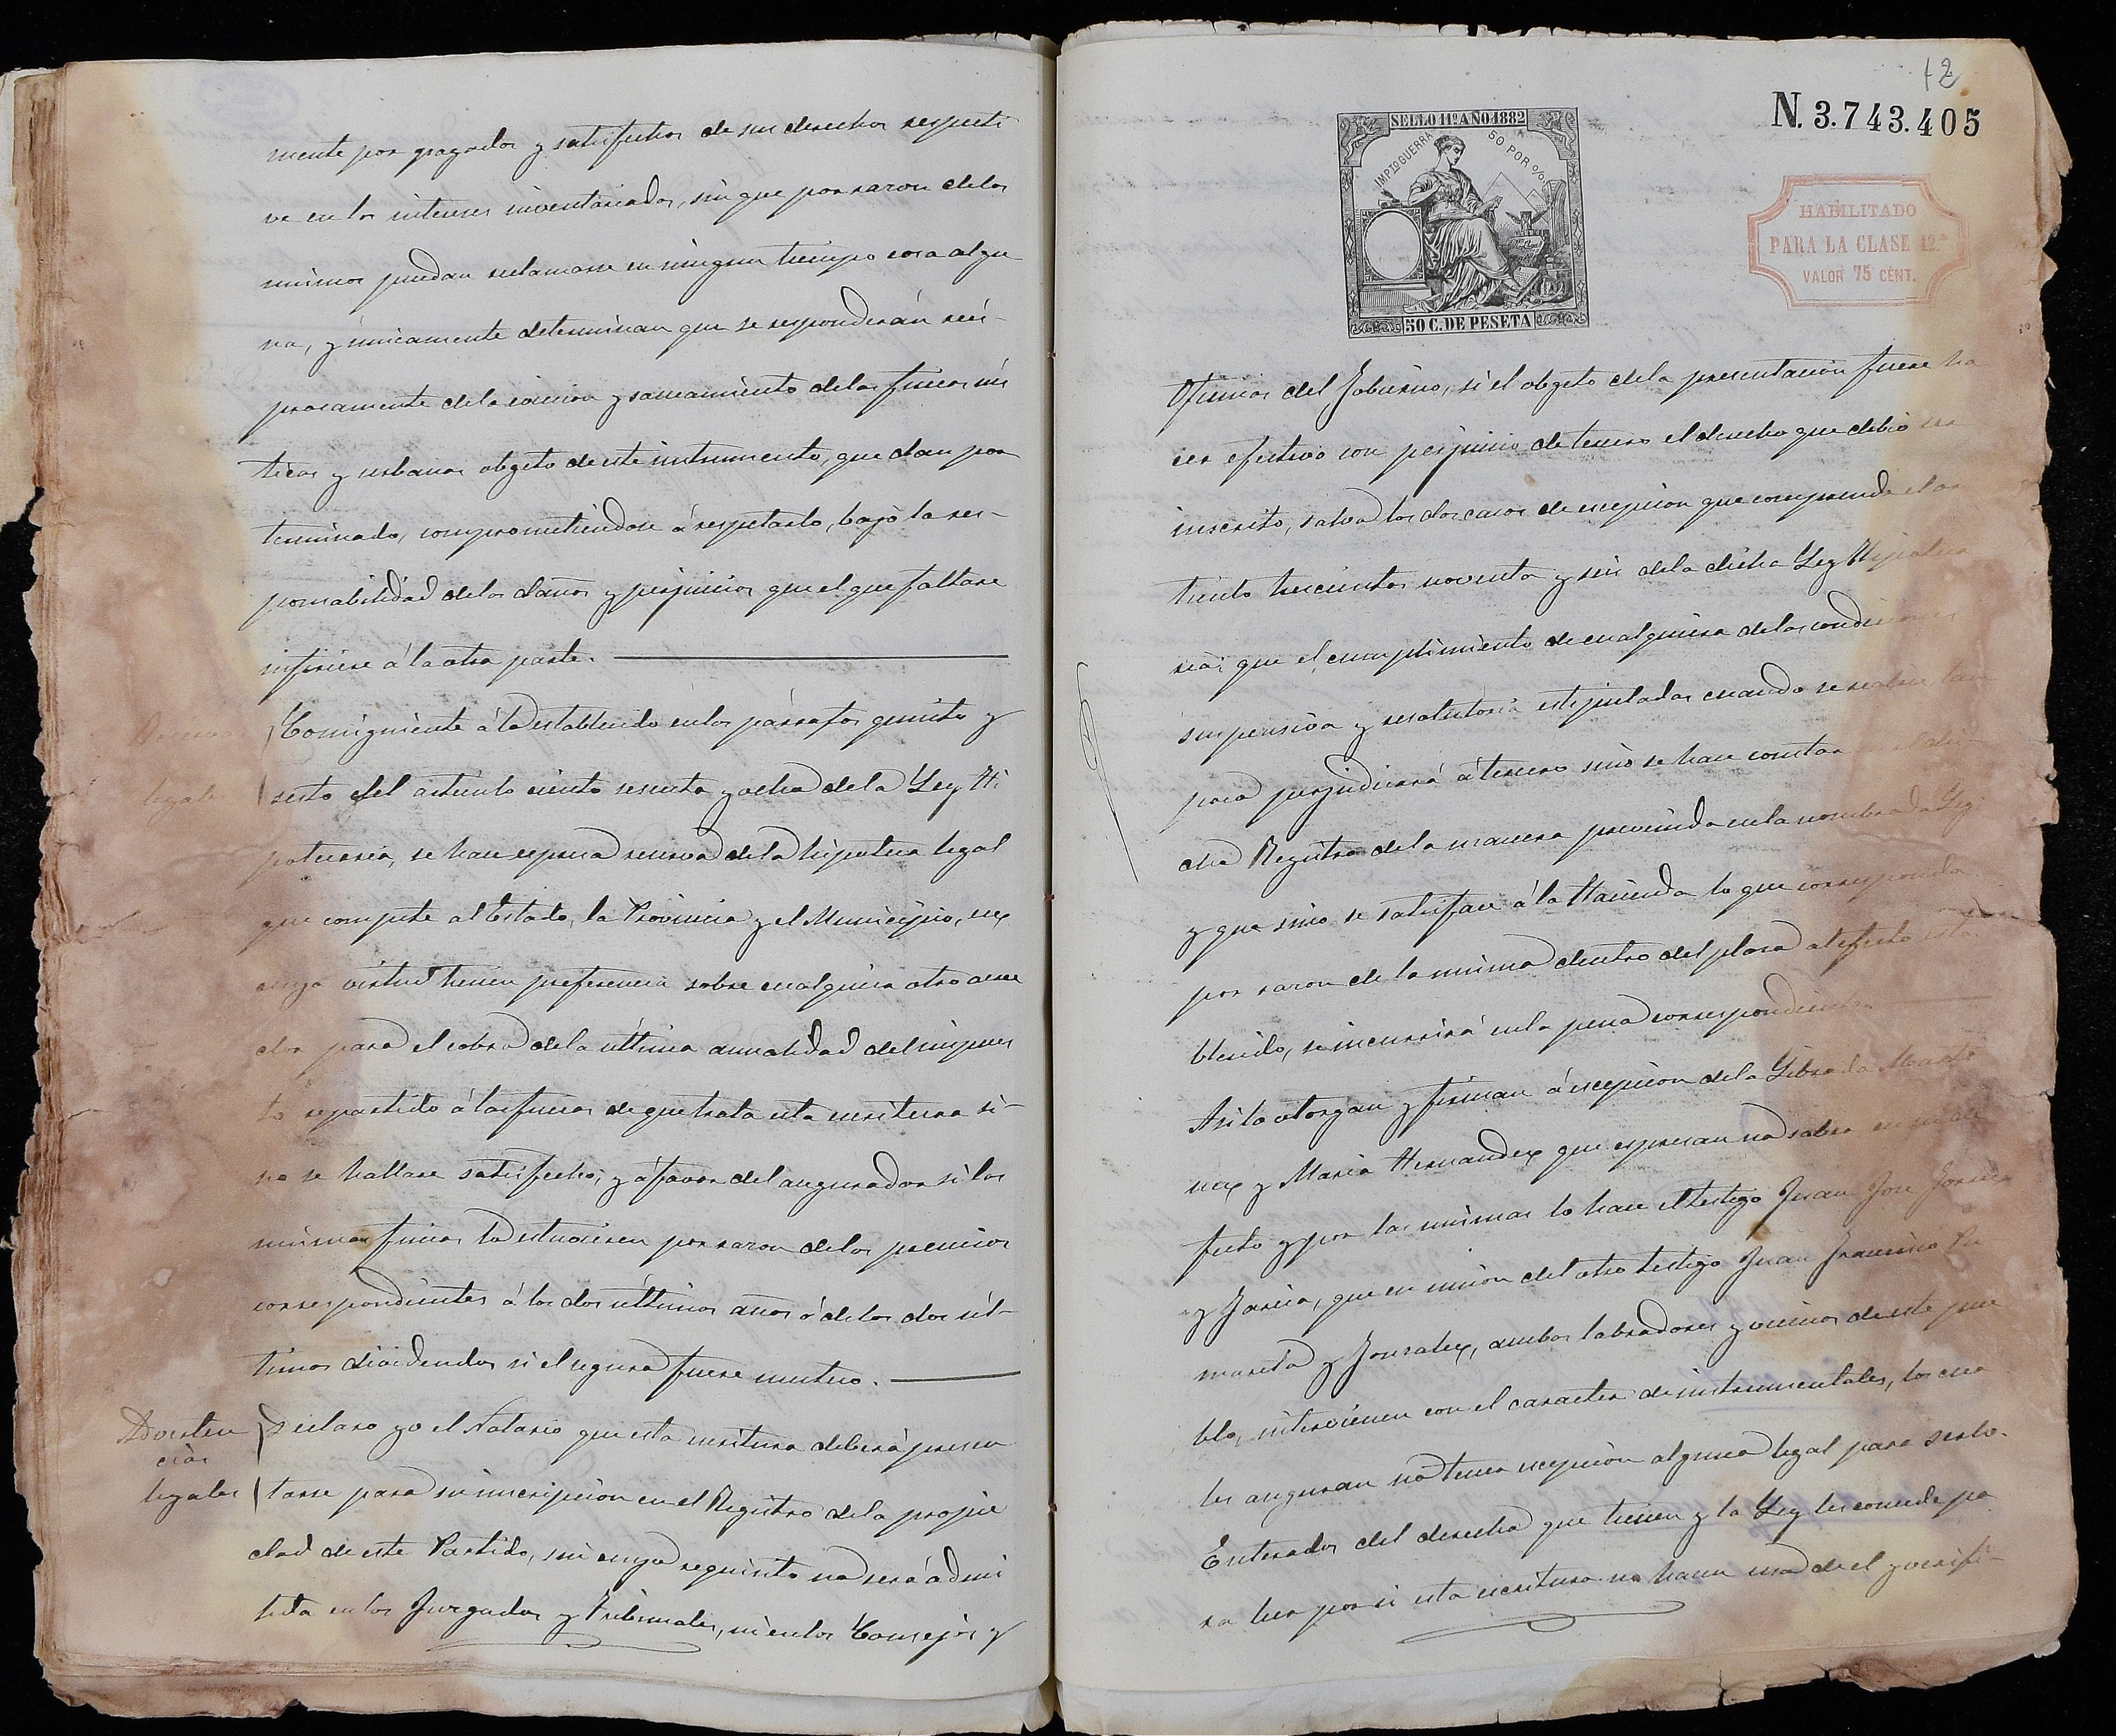 mente por pagados y satisfechos de sus derechos respecti
ve en los intereses inventariados, sin que por razon de los
mismos puedan reclamarse en ningun tiempo cosa algu
na, y únicamente determinan que se responderán recí-
procamente de la eviccion y saneamiento de las fincas rús
ticas y urbanas obgeto de este instrumento, que dan por
terminado, comprometiéndose á respetarlo, bajo la res-
ponsabilidad de los daños y perjuicios que el que faltare
infiriese á la otra parte.
Reserva
Consiguiente á lo establecido en los párrafos quinto y
legal
sesto del artículo ciento sesenta y ocho de la Ley Hi
potecaria, se hace espresa reserva de la hipoteca legal
que compete al Estado, la Provincia y el Municipio, en
cuya virtud tienen preferencia sobre cualquier otro acree
dor para el cobro de la última anualidad del impues
to repartido á las fincas de que trata esta escritura si-
no se hallase satisfecho; y á favor del asegurador si las
mismas fincas lo estuviesen por razon de los premios
correspondientes á los dos últimos años ó de los dos úl-
timos dividendos si el seguro fuere mutuo.
Adverten
cias
legales
Declaro yo el Notario que esta escritura deberá presen
tarse para su inscripcion en el Registro de la propie
dad de este Partido, sin cuyo requisito no será admi
tida en los Juzgados y Tribunales, ni en los Consejos y
12
N. 3.743.405
SELLO 11º AÑO 1882
IMPTº GUERRA 50 POR %
50 C. DE PESETA
HABILITADO
PARA LA CLASE 12.ª
VALOR 75 CENT.
Oficinas del Gobierno, si el obgeto de la presentacion fuere ha
cer efectivo con perjuicio de tercero el derecho que debió ser
inscrito, salvo los dos casos de escepcion que comprende el ar
tículo trescientos noventa y seis de la dicha Ley Hipoteca
ria; que el cumplimiento de cualquiera de las condiciones
suspensiva y resolutoria estipuladas cuando se realice tam
poco perjudicará á tercero sino se hace constar en el di
cho Registro de la manera prevenida en la nombrada Ley
y que sino se satisface á la Hacienda lo que corresponda
por razon de la misma dentro del plazo al efecto esta
blecido, se incurrirá en la pena correspondiente.
Asi lo otorgan y firman á escepcion de la Librada Marti
nez y Maria Hernandez que espresan no saber
fecto y por las mismas lo hace el testigo Juan José Garcia
y Garcia, que en union del otro testigo Juan Francisco
y Gonzalez, ambos labradores y vecinos de este pue
blo, intervienen con el caracter de instrumentales, los cua
les aseguran no tener escepcion alguna legal para serlo.
Enterados del derecho que tienen y la Ley les concede pa
ra leer por sí esta escritura no hacen uso de el y verifi-